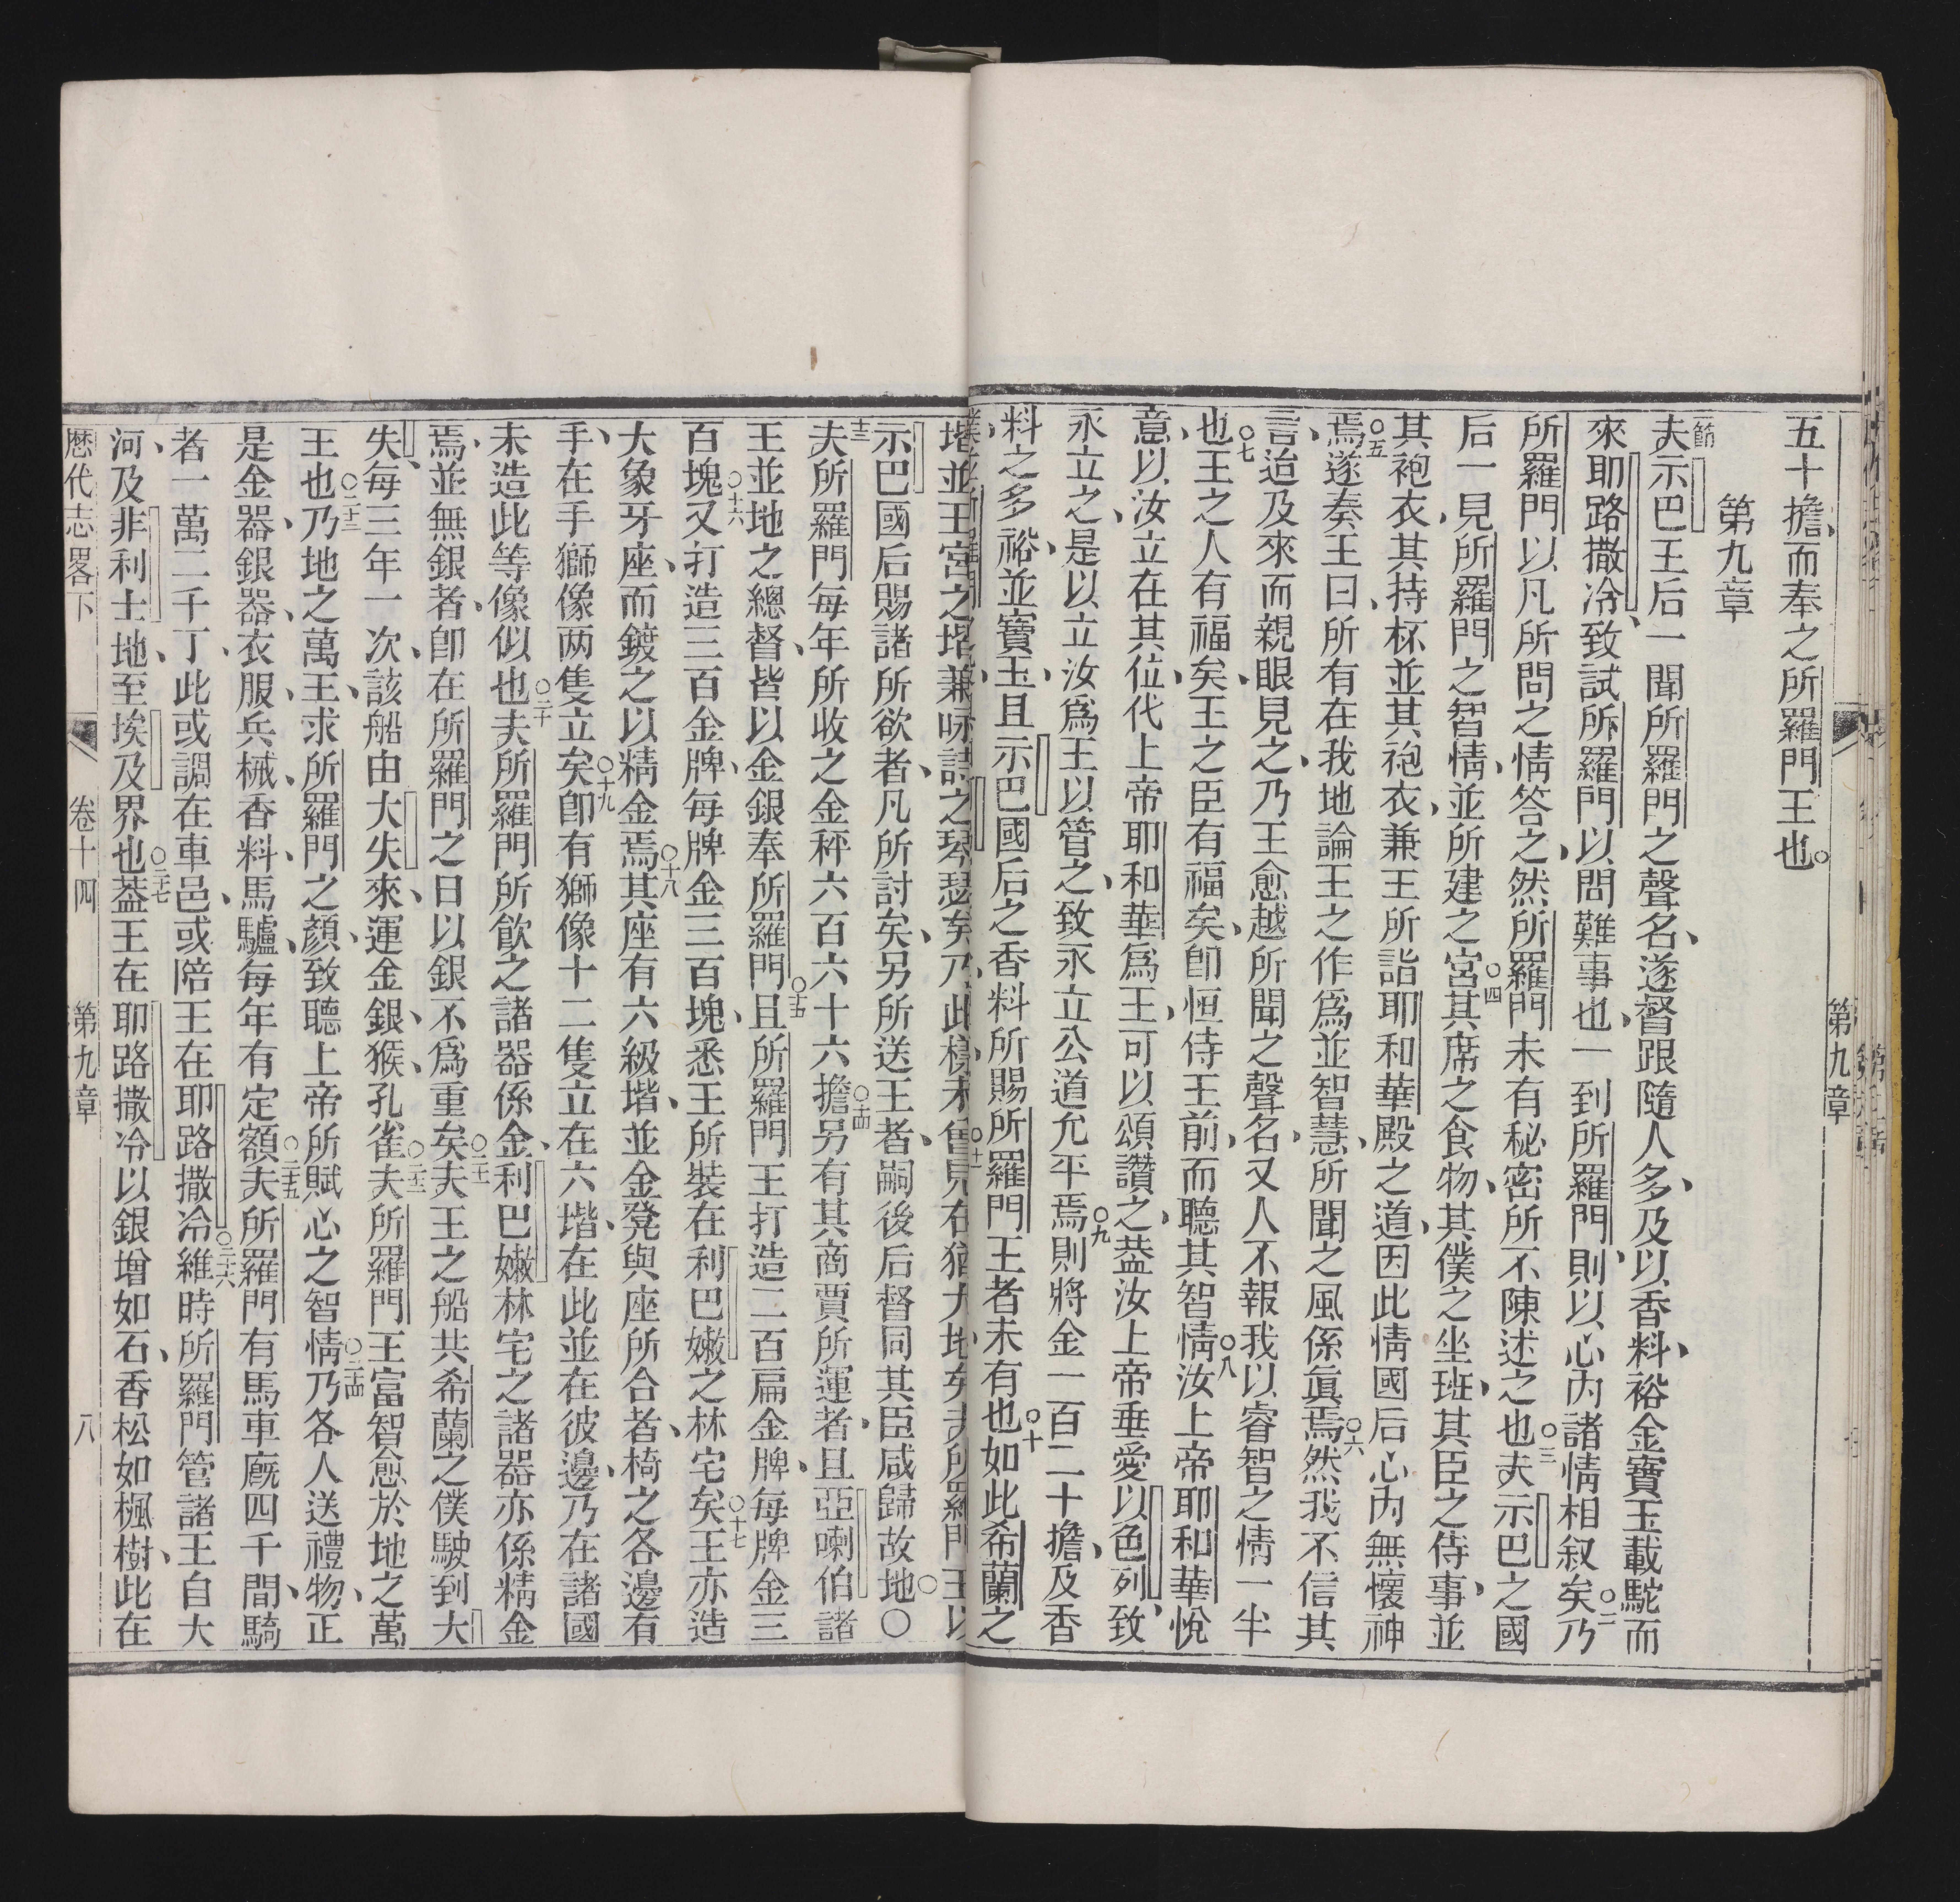 五十擔、而奉之所羅門王也。
第九章
一節
夫示巴王后一聞所羅門之聲名、遂督跟隨人多、及以香料、裕金寶玉載駝而
來耶路撒冷、致試所羅門以問難事也、一到所羅門、則以心內諸情相叙矣○二乃
所羅門以凡所問之情答之、然所羅門未有秘密所不陳述之也○三夫示巴之國
后一見所羅門之智情、並所建之宮○四其席之食物、其僕之坐班、其臣之侍事、並
其袍衣、其持杯並其袍衣、兼王所詣耶和華殿之道、因此情國后心內無懷神
焉○五遂奏王曰、所有在我地論王之作爲並智慧、所聞之風係眞焉○六然我不信其
言、迨及來而親眼見之、乃王愈越所聞之聲名、又人不報我以睿智之情一半
也○七王之人有福矣、王之臣有福矣、卽恒侍王前、而聽其智情○八汝上帝耶和華悅
意、以汝立在其位、代上帝耶和華爲王、可以頌讚之、葢汝上帝垂愛以色列、致
永立之、是以立汝爲王以管之、致永立公道允平焉○九則將金一百二十擔、及香
料之多裕、並寶玉、且示巴國后之香料所賜所羅門王者未有也○十如此希蘭之
堦並王宮之堦、兼咏詩之琴瑟矣、乃此樣未曾見在猶大地矣
示巴國后賜諸所欲者、凡所討矣、另所送王者、嗣後后督同其臣咸歸故地○
十三
夫所羅門每年所收之金秤六百六十六擔○十四另有其商賈所運者、且亞喇伯諸
王並地之總督、皆以金銀奉所羅門○十五且所羅門王打造二百扁金牌、每牌金三
百塊○十六又打造三百金牌、每牌金三百塊、悉王所裝在利巴嫩之林宅矣○十七王亦造
大象牙座、而鍍之以精金焉○十八其座有六級堦、並金凳與座所合者、椅之各邊有
手、在手獅像两隻立矣○十九卽有獅像十二隻立在六堦、在此並在彼邊、乃在諸國
未造此等像似也○二十夫所羅門所飮之諸器係金、利巴嫩林宅之諸器亦係精金
焉、並無銀者、卽在所羅門之日以銀不爲重矣○二十一夫王之船共希蘭之僕駛到大
失、每三年一次、該船由大失來、運金銀、猴、孔雀○二十二夫所羅門王富智愈於地之萬
王也○二十三乃地之萬王、求所羅門之顏、致聽上帝所賦心之智情○二十四乃各人送禮物、正
是金器、銀器、衣服、兵械、香料、馬驢、每年有定額○二十五夫所羅門有馬車廐四千間、騎
者一萬二千丁、此或調在車邑、或陪王在耶路撒冷○二十六維時所羅門管諸王自大
河、及非利士地、至埃及界也○二十七葢王在耶路撒冷以銀增如石、香松如楓樹、此在
歷代志畧下　卷十四　第九章　八